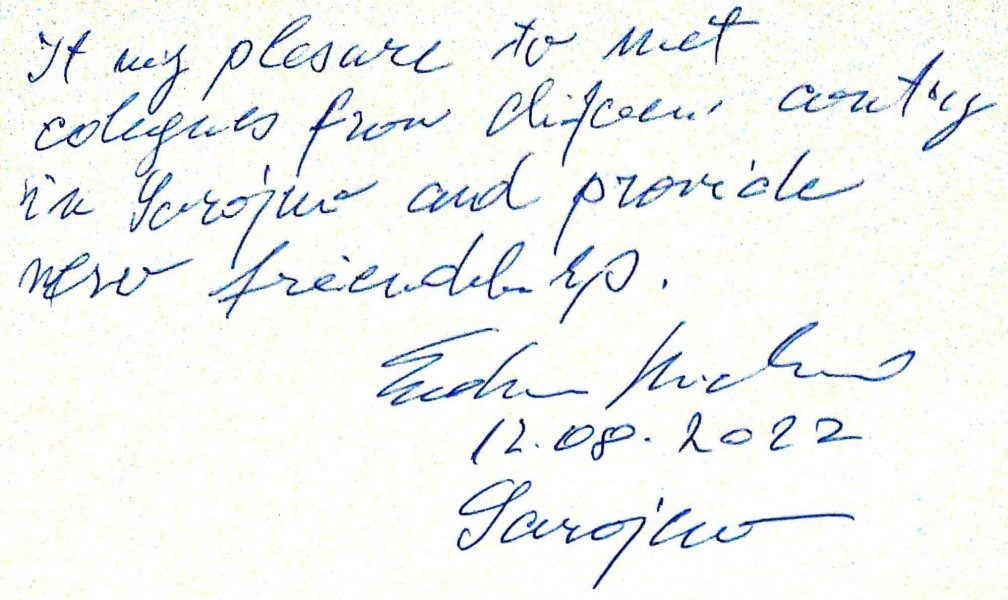 It my plesure to met
colegues from different contry
in Sarajevo and provide
new friendships.
12.08.2022
Sarajevo